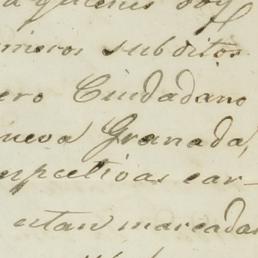 a quienes doy
subditos
ero Ciudadano
nueva Granada,
espectivas car-
estan marcadas